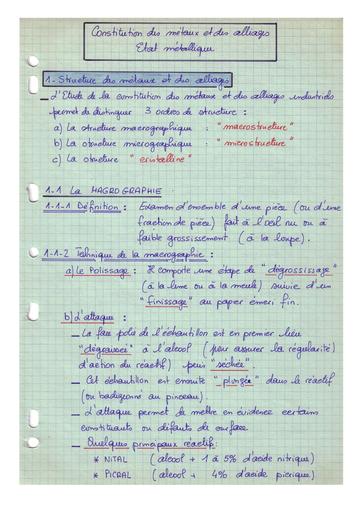 Constitution des métaux et des alliages
Etat métallique
1- Structure des métaux et des alliages
_ L'Etude de la constitution des métaux et des alliages industriels
permet de distinguer 3 ordres de structure :
a) La structure macrographique : "macrostructure"
b) La structure micrographique : "microstructure"
c) La structure "cristalline"
1.1 La MACROGRAPHIE
1-1-1 Définition : Examen d'ensemble d'une pièce (ou d'une
fraction de pièce) fait à l'œil nu ou à
faible grossissement (à la loupe).
1-1-2 Technique de la macrographie :
a) Le Polissage : Il comporte une étape de "dégrossissage"
(à la lime ou à la meule) suivie d'un
"finissage" au papier émeri fin.
b) L'attaque :
_ La face polie de l'échantillon est en premier lieu
"dégraissée" à l'alcool (pour assurer la régularité)
d'action du réactif) puis "séchée".
_ Cet échantillon est ensuite "plongée" dans le réactif
(ou badigeonné au pinceau).
_ L'attaque permet de mettre en évidence certains
constituants ou défauts de surface.
_ Quelques principaux réactifs :
* NITAL (alcool + 1 à 5% d'acide nitrique)
* PICRAL (alcool + 4% d'acide picrique)